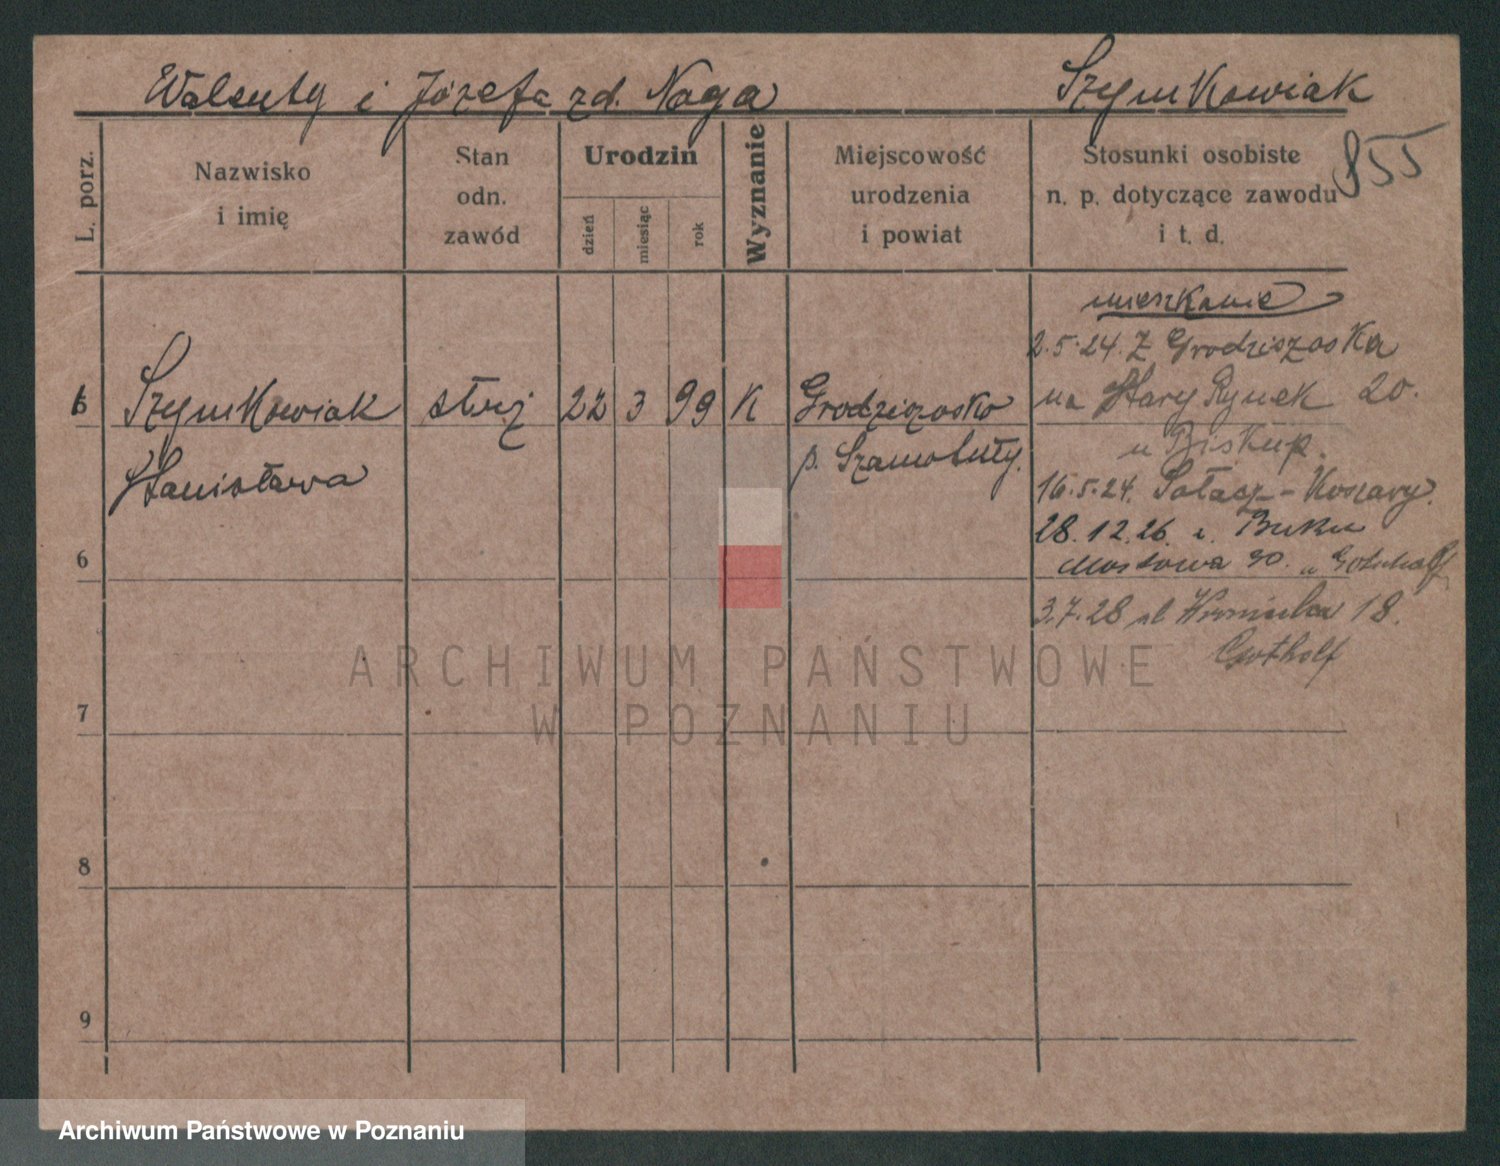 Walenty i Józefa zd. Naga Szymkowiak
855
L. porz.
Nazwisko
i imię
Stan
odn.
zawód
Urodzin
dzień
miesiąc
rok
Wyznanie
Miejscowość
urodzenia
i powiat
Stosunki osobiste
n. p. dotyczące zawodu
i t. d.
mieszkanie
2.5.24. z Grodziszoska
Szymkowiak służ 22 3 99 K Grodziszosko na Stary Rynek 20.
Stanisława p. Szamotuły. u Biskup.
16.5.24. Sołacz - Koszary.
28.12.26. z Buku
6
Mostowa 30. u Gotholf
3.7.28 ul. 18.
Gotholf
7
8
9
ARCHIWUM PAŃSTWOWE
W POZNANIU
Archiwum Państwowe w Poznaniu